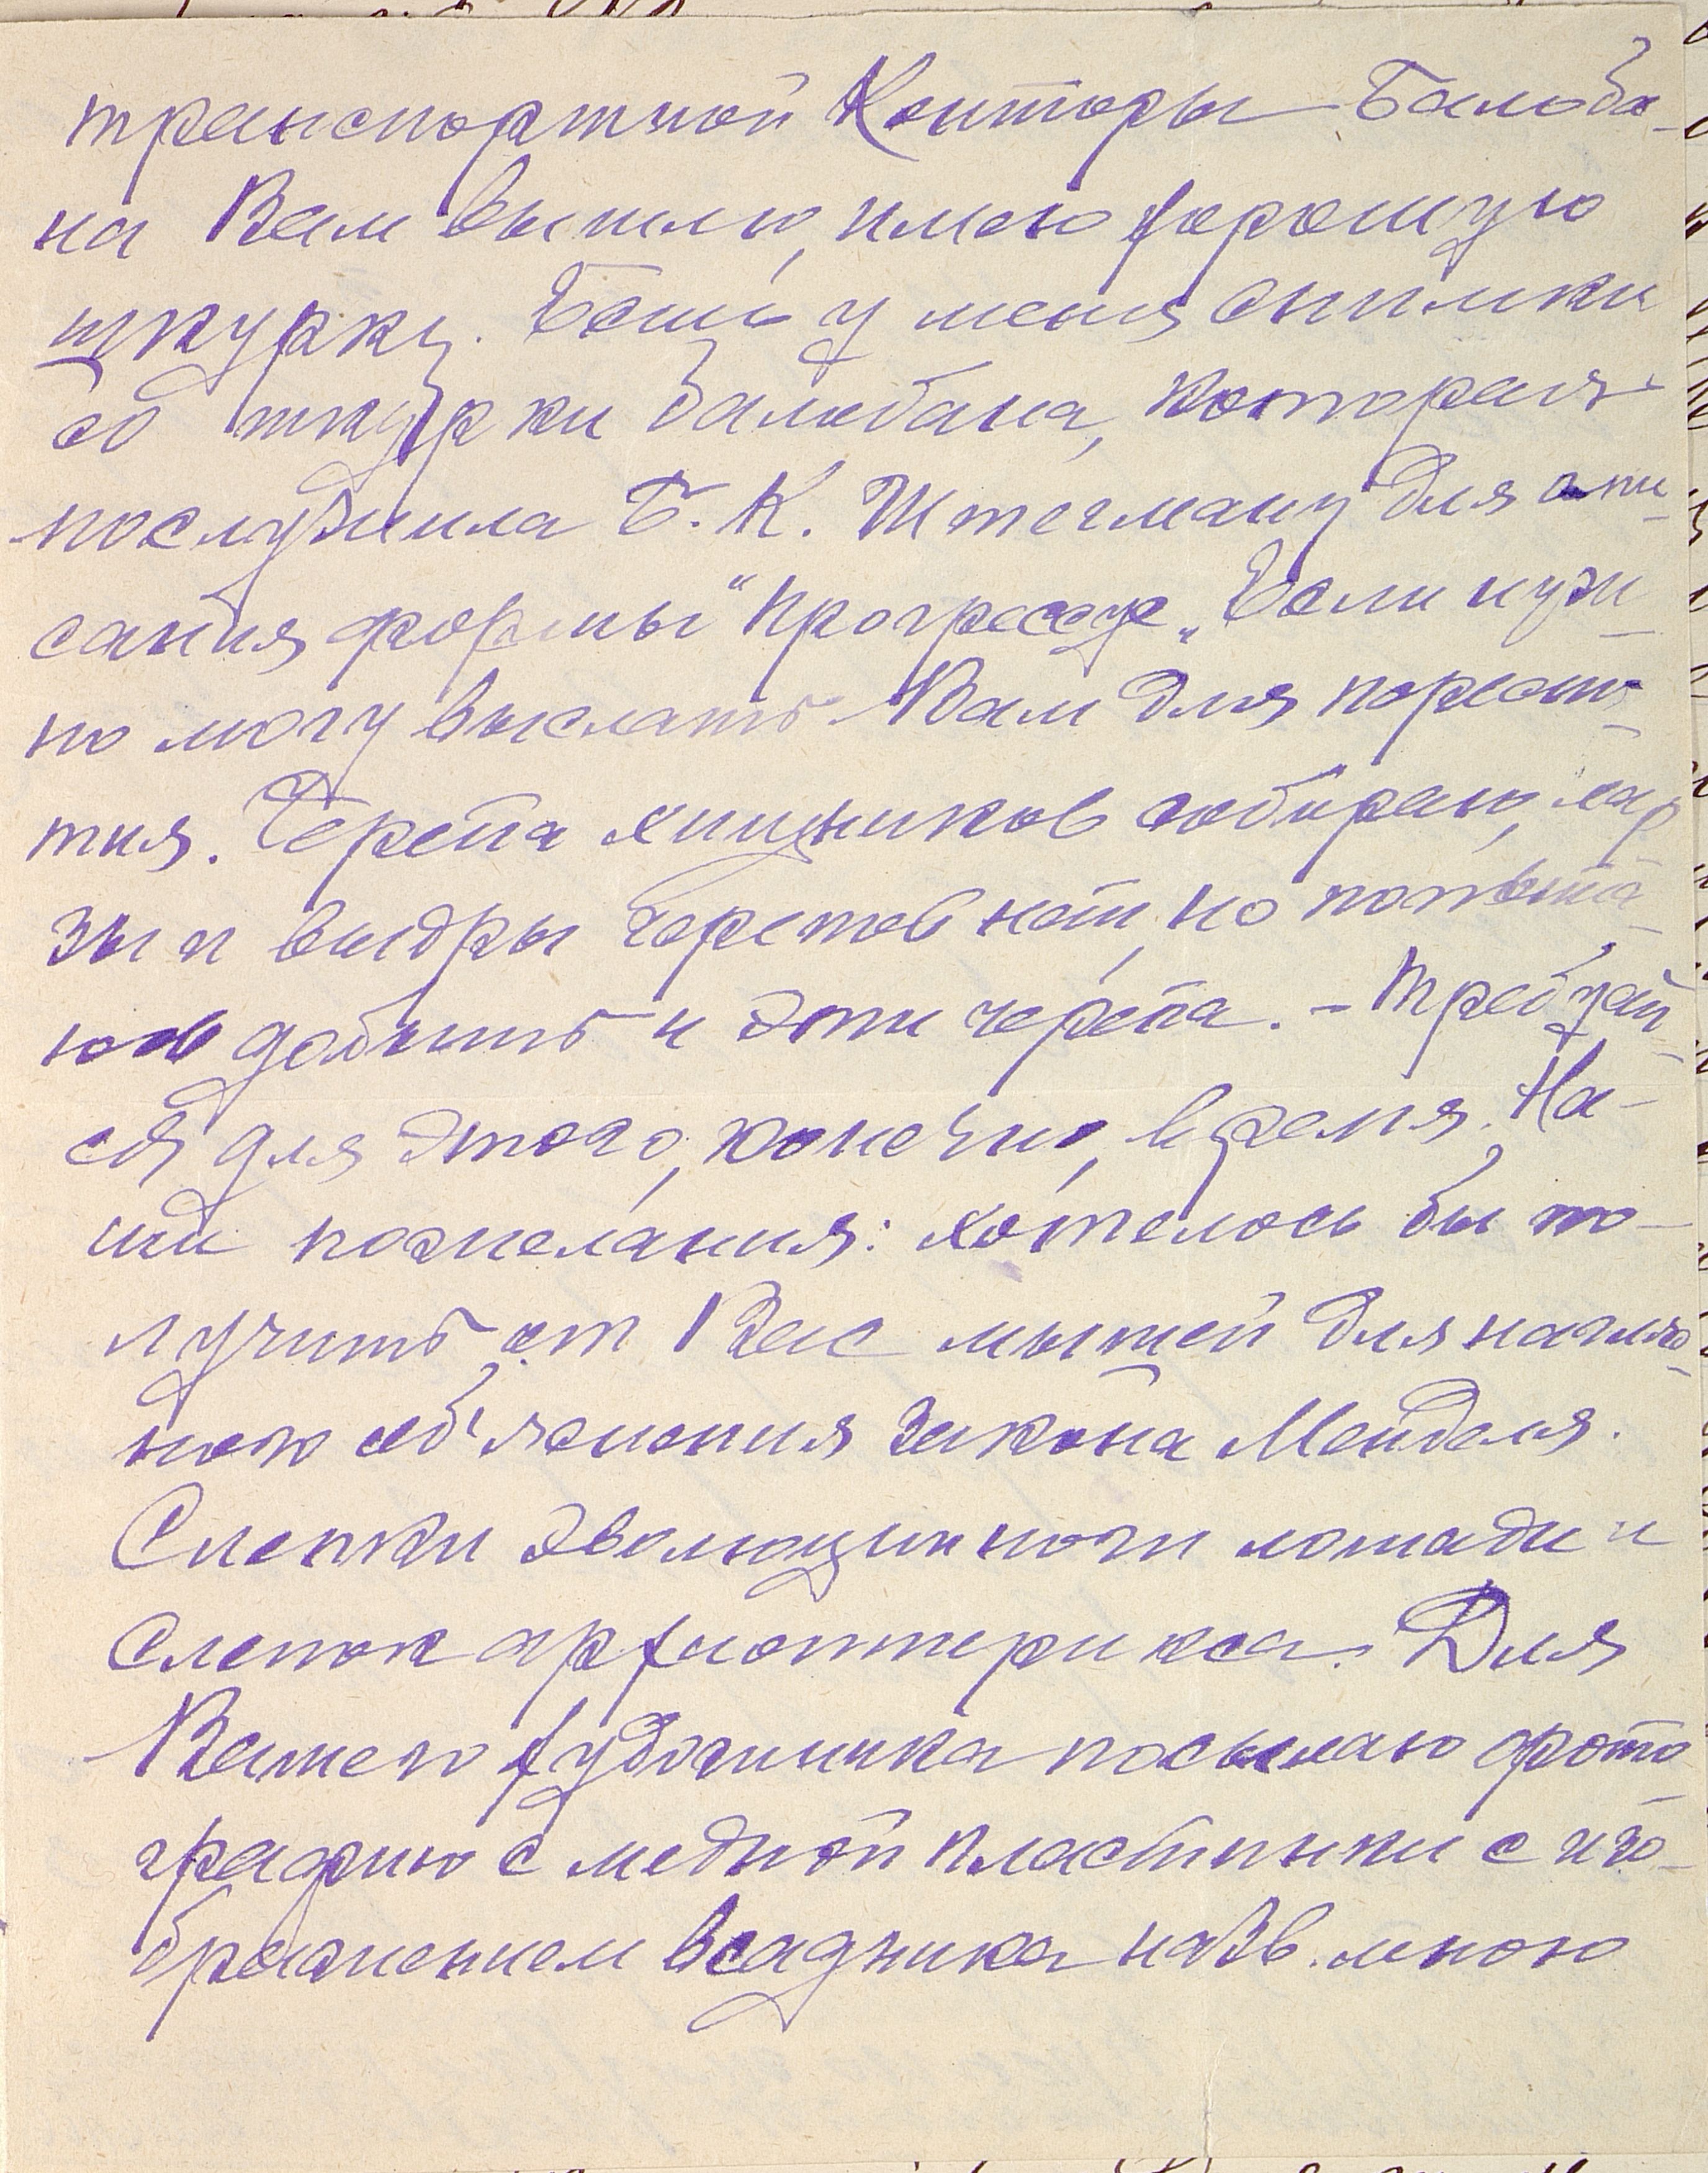 транспортной Конторы Балоба-
на Вам вышлю, имею хорошую
шкурку. Есть у меня снимки
со шкурки балобана, которая
послужила Б. К. Штегману для опи-
сания формы "Прогрессус„ Если нуж-
но могу выслать Вам для
тия. Черепа хищников собираю, хар
зы и выдры черепов нет, но попыта-
юсь добыть и эти черепа. - Требует-
ся для этого, конечно, время. На-
ши пожелания: хотелось бы по-
лучить от Вас мышей для нагля-
дного об'яснения закона Менделя.
Слепки эволюции ноги лошади и
слепок археоптерикса. Для
Вашего художника посылаю фото-
графию с медной пластинки с изо-
бражением всадника назв. мною